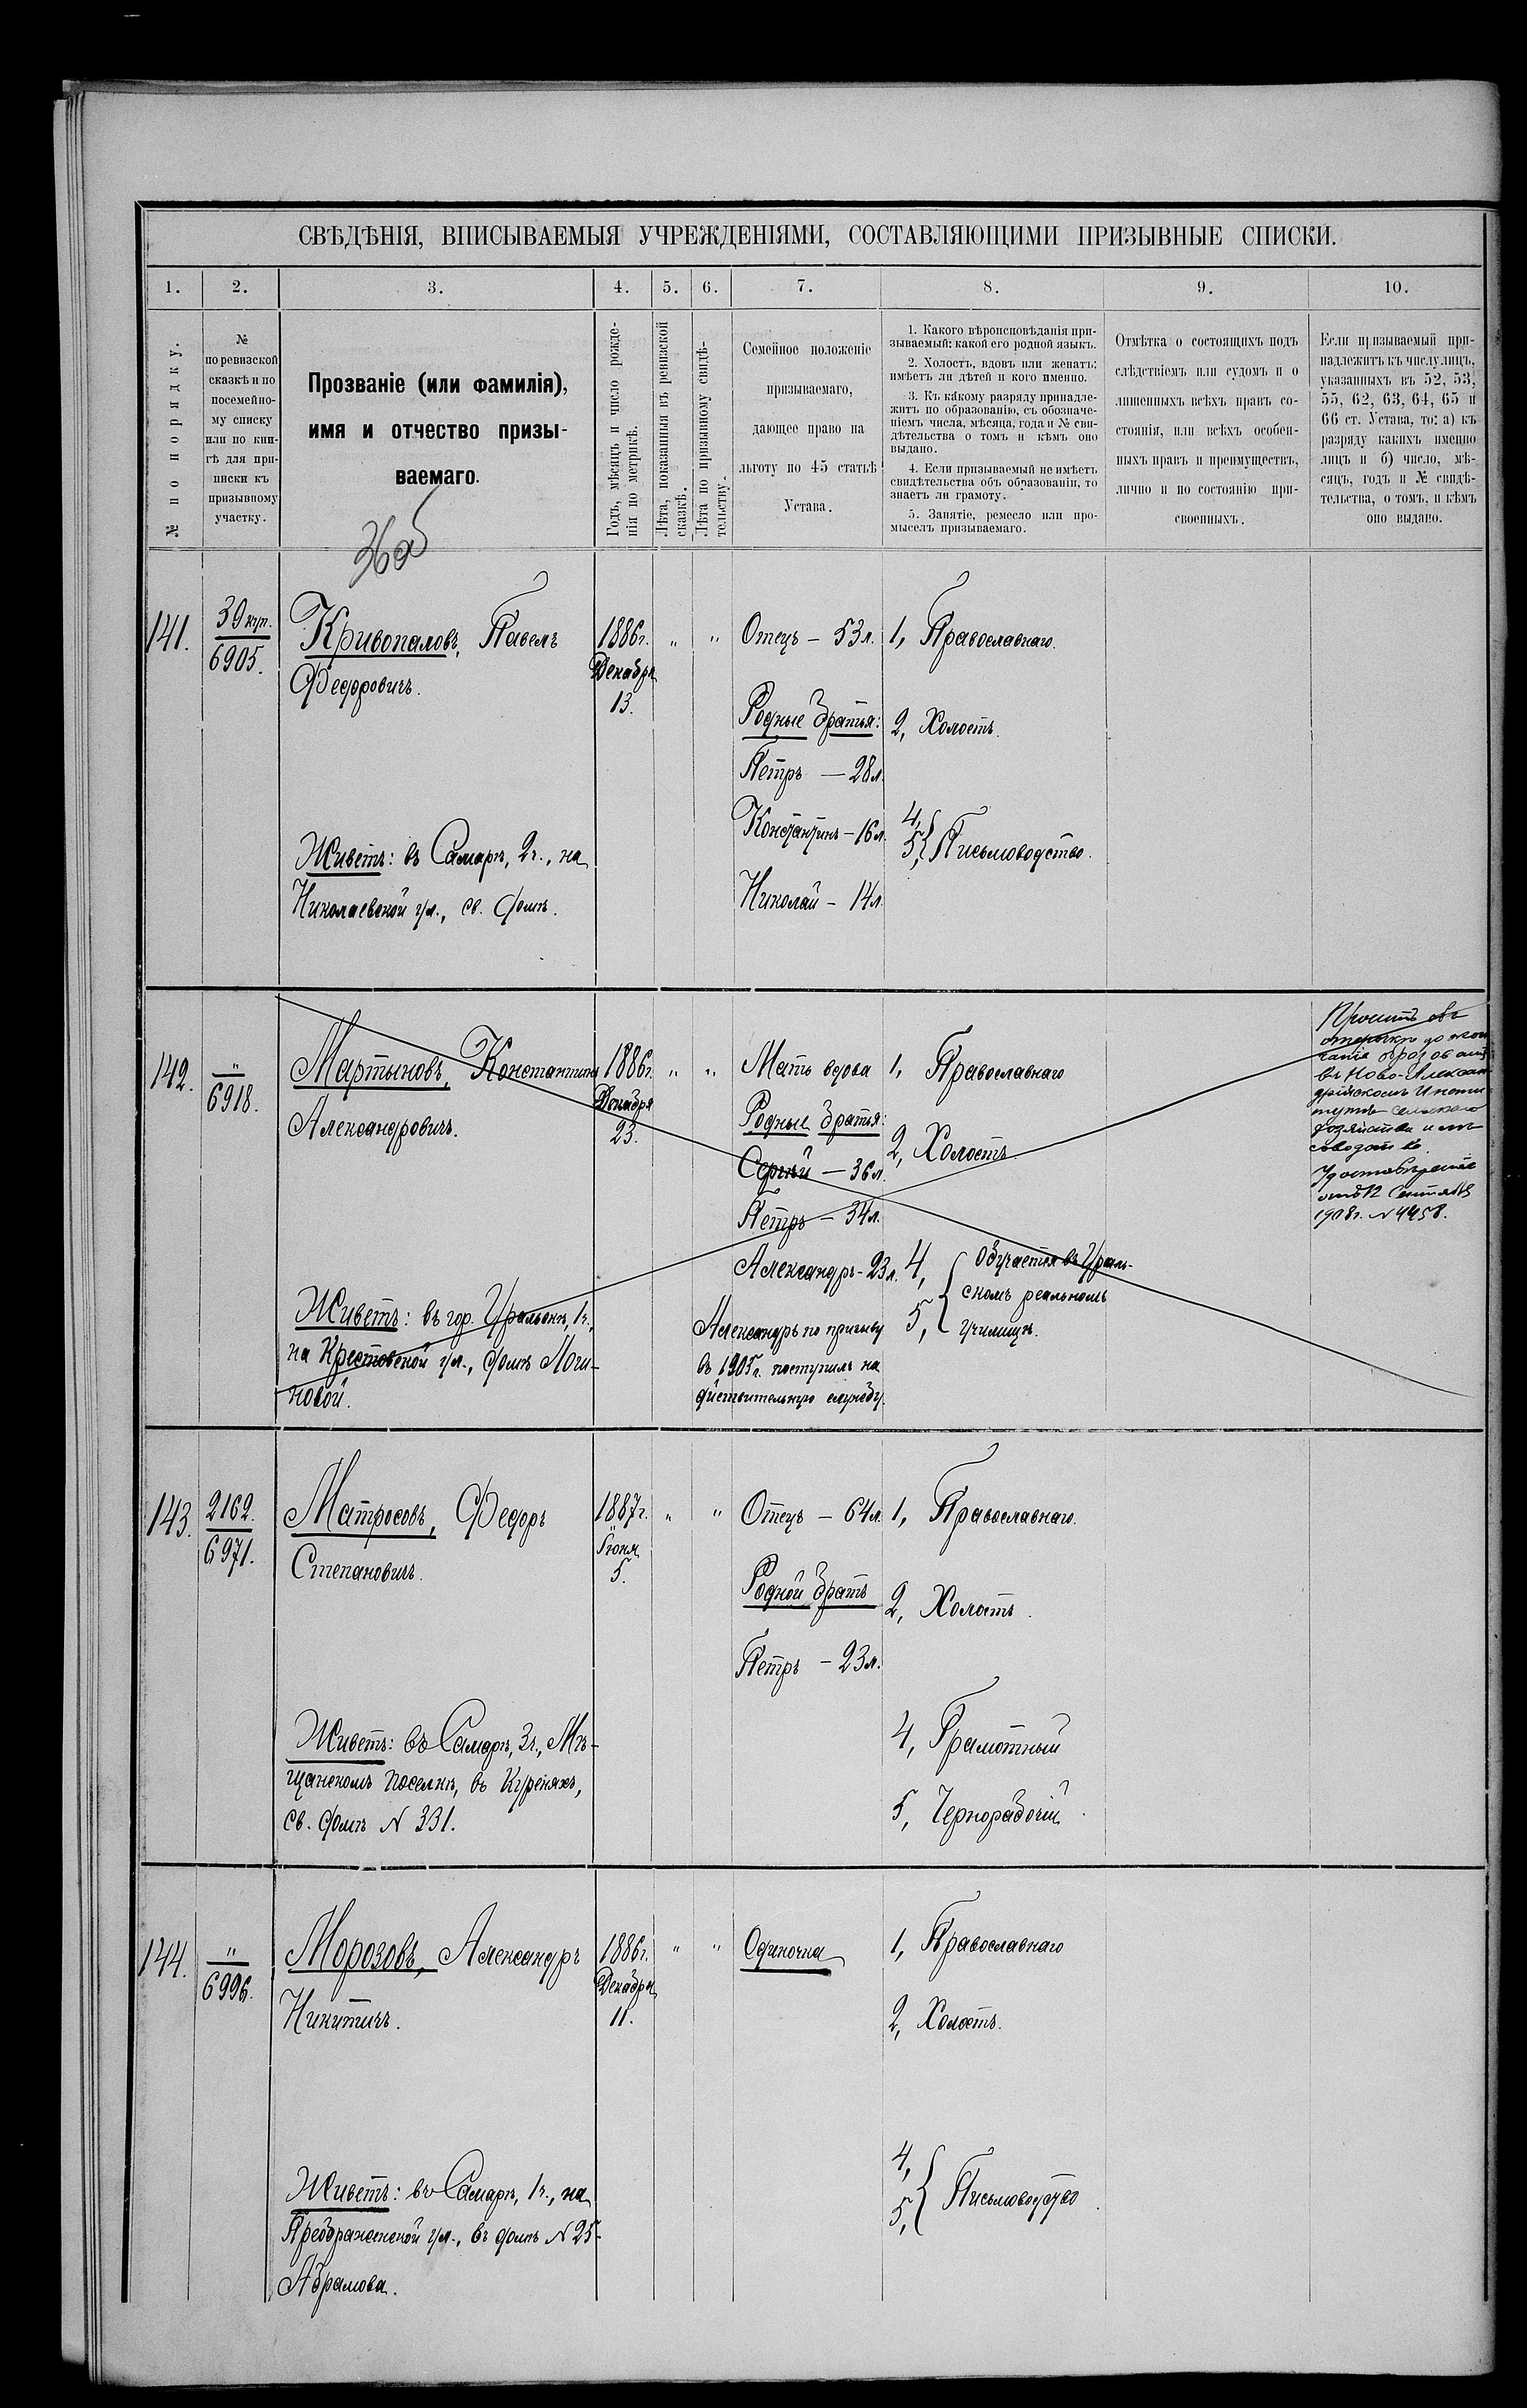 СВѢДѢНІЯ, ВПИСЫВАЕМЫЯ УЧРЕЖДЕНІЯМИ, СОСТАВЛЯЮЩИМИ ПРИЗЫВНЫЕ СПИСКИ.
1. 2. 3. 4. 5. 6. 7. 8. 9. 10.
№ по порядку.
№
по ревизской
сказкѣ и по
посемейно-
му списку
или по кни-
гѣ для при-
писки къ
призывному
участку.
Прозваніе (или фамилія),
имя и отчество призы-
ваемаго.
Годъ, мѣсяцъ и число рожде-
нія по метрикѣ.
Лѣта, показанныя въ ревизской
сказкѣ.
Лѣта по призывному свидѣ-
тельству.
Семейное положеніе
призываемаго,
дающее право на
льготу по 45 статьѣ
Устава.
1. Какого вѣроисповѣданія при-
зываемый: какой его родной языкъ.
2. Холостъ, вдовъ или женатъ:
имѣетъ ли дѣтей и кого именно.
3. Къ какому разряду принадле-
житъ по образованію, съ обозначе-
ніемъ числа, мѣсяца, года и № сви-
дѣтельства о томъ и кѣмъ оно
выдано.
4. Если призываемый не имѣетъ
свидѣтельства объ образованіи, то
знаетъ ли грамоту.
5. Занятіе, ремесло или про-
мыселъ призываемаго.
Отмѣтка о состоящихъ подъ
слѣдствіемъ или судомъ и о
лишенныхъ всѣхъ правъ со-
стоянія, или всѣхъ особен-
ныхъ правъ и преимуществъ,
лично и по состоянію при-
своенныхъ.
Если призываемый при-
надлежитъ къ числу лицъ,
указанныхъ въ 52, 53,
55, 62, 63, 64, 65 и
66 ст. Устава, то: а) къ
разряду какихъ именно
лицъ и б) число, мѣ-
сяцъ, годъ и № свидѣ-
тельства, о томъ, и кѣмъ
оно выдано.
141.
39 куп.
6905.
Кривопаловъ, Павелъ
Федоровичъ.
Живетъ: въ Самарѣ, 2ч., на
Николаевской ул., св. домѣ.
1886г.
Декабря
13.
" "
Отецъ – 53л.
Родные братья:
Петръ – 28л.
Константинъ – 16л.
Николай – 14л.
1, Православнаго.
2, Холостъ.
4,
5, Письмоводство.
142.
"
6918.
Мартыновъ, Константинъ
Александровичъ.
Живетъ: въ гор. Уральскѣ, 1ч.,
на Крестовской ул., домѣ Логи-
новой.
1886г.
Декабря
23.
" "
Мать вдова
Родные братья:
Сергѣй – 36л.
Петръ – 34л.
Александръ – 23л.
Александръ по призыву
въ 1905г. поступилъ на
дѣйствительную службу.
1, Православнаго
2, Холостъ
4,
5,
Обучается въ Ураль-
скомъ реальномъ
училищѣ.
Проситъ объ
отсрочкѣ до окон
чанія образов
въ Ново-Алексан
дрійскомъ Инсти
тутѣ сельскаго
хозяйства и лѣ
соводства.
Удостовѣреніе
отъ 12 Сентября
1908г. № 4458.
143.
2162.
6971.
Матросовъ, Федоръ
Степановичъ.
Живетъ: въ Самарѣ, 3ч., Мѣ-
щанскомъ поселкѣ, въ Куреняхъ,
св. домѣ № 331.
1887г.
Іюня
5.
" "
Отецъ – 64л.
Родной братъ
Петръ – 23л.
1, Православнаго.
2, Холостъ.
4, Грамотный
5, Чернорабочій.
144.
"
6996.
Морозовъ, Александръ
Никитичъ.
Живетъ: въ Самарѣ, 1ч., на
Преображенской ул., въ домѣ № 25
Абрамова.
1886г.
Декабря
11.
" "
Одиночка
1, Православнаго
2, Холостъ.
4,
5, Письмоводство.